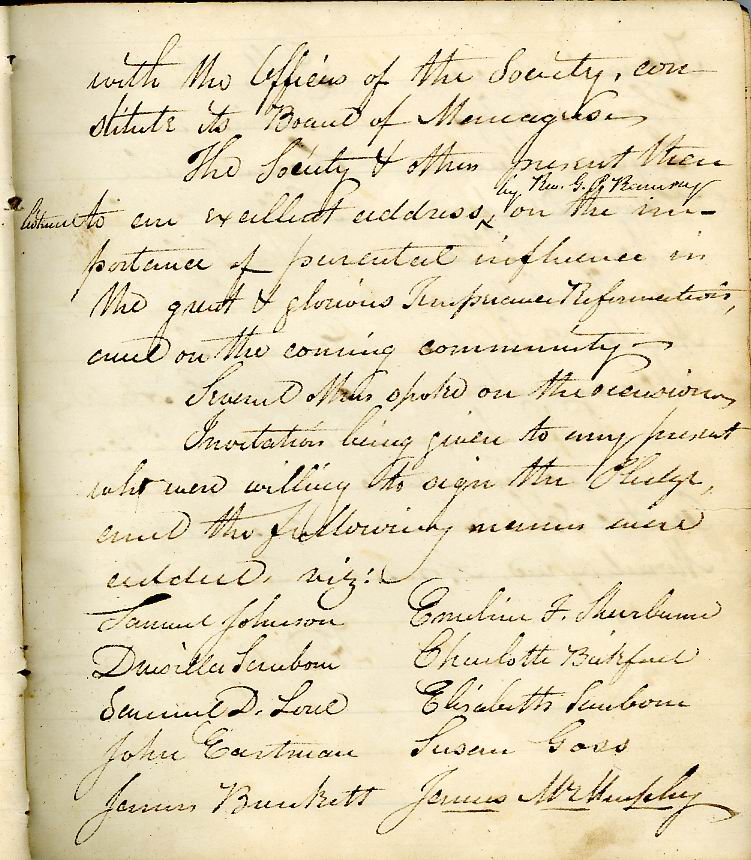 with the Officers of the Society, con
stitute its Board of Managers
The Society & others present then
by Rev. G. P. Ramsay
listened to an excellent address, on the im-
portance of parental influence in
the great & glorious Temperance Reformation,
and on the coming community
Several others spoke on the occasion
Invitation being given to any present
who were willing to sign the Pledge,
and the following names were
added, viz:
Samuel Johnson Emeline F. Sherburne
Drusilla Sanborn Charlotte Bickford
Samuel D. Lord Elisabeth Sanborn
John Eastman Susan Goss
James Brackett James McMurphy